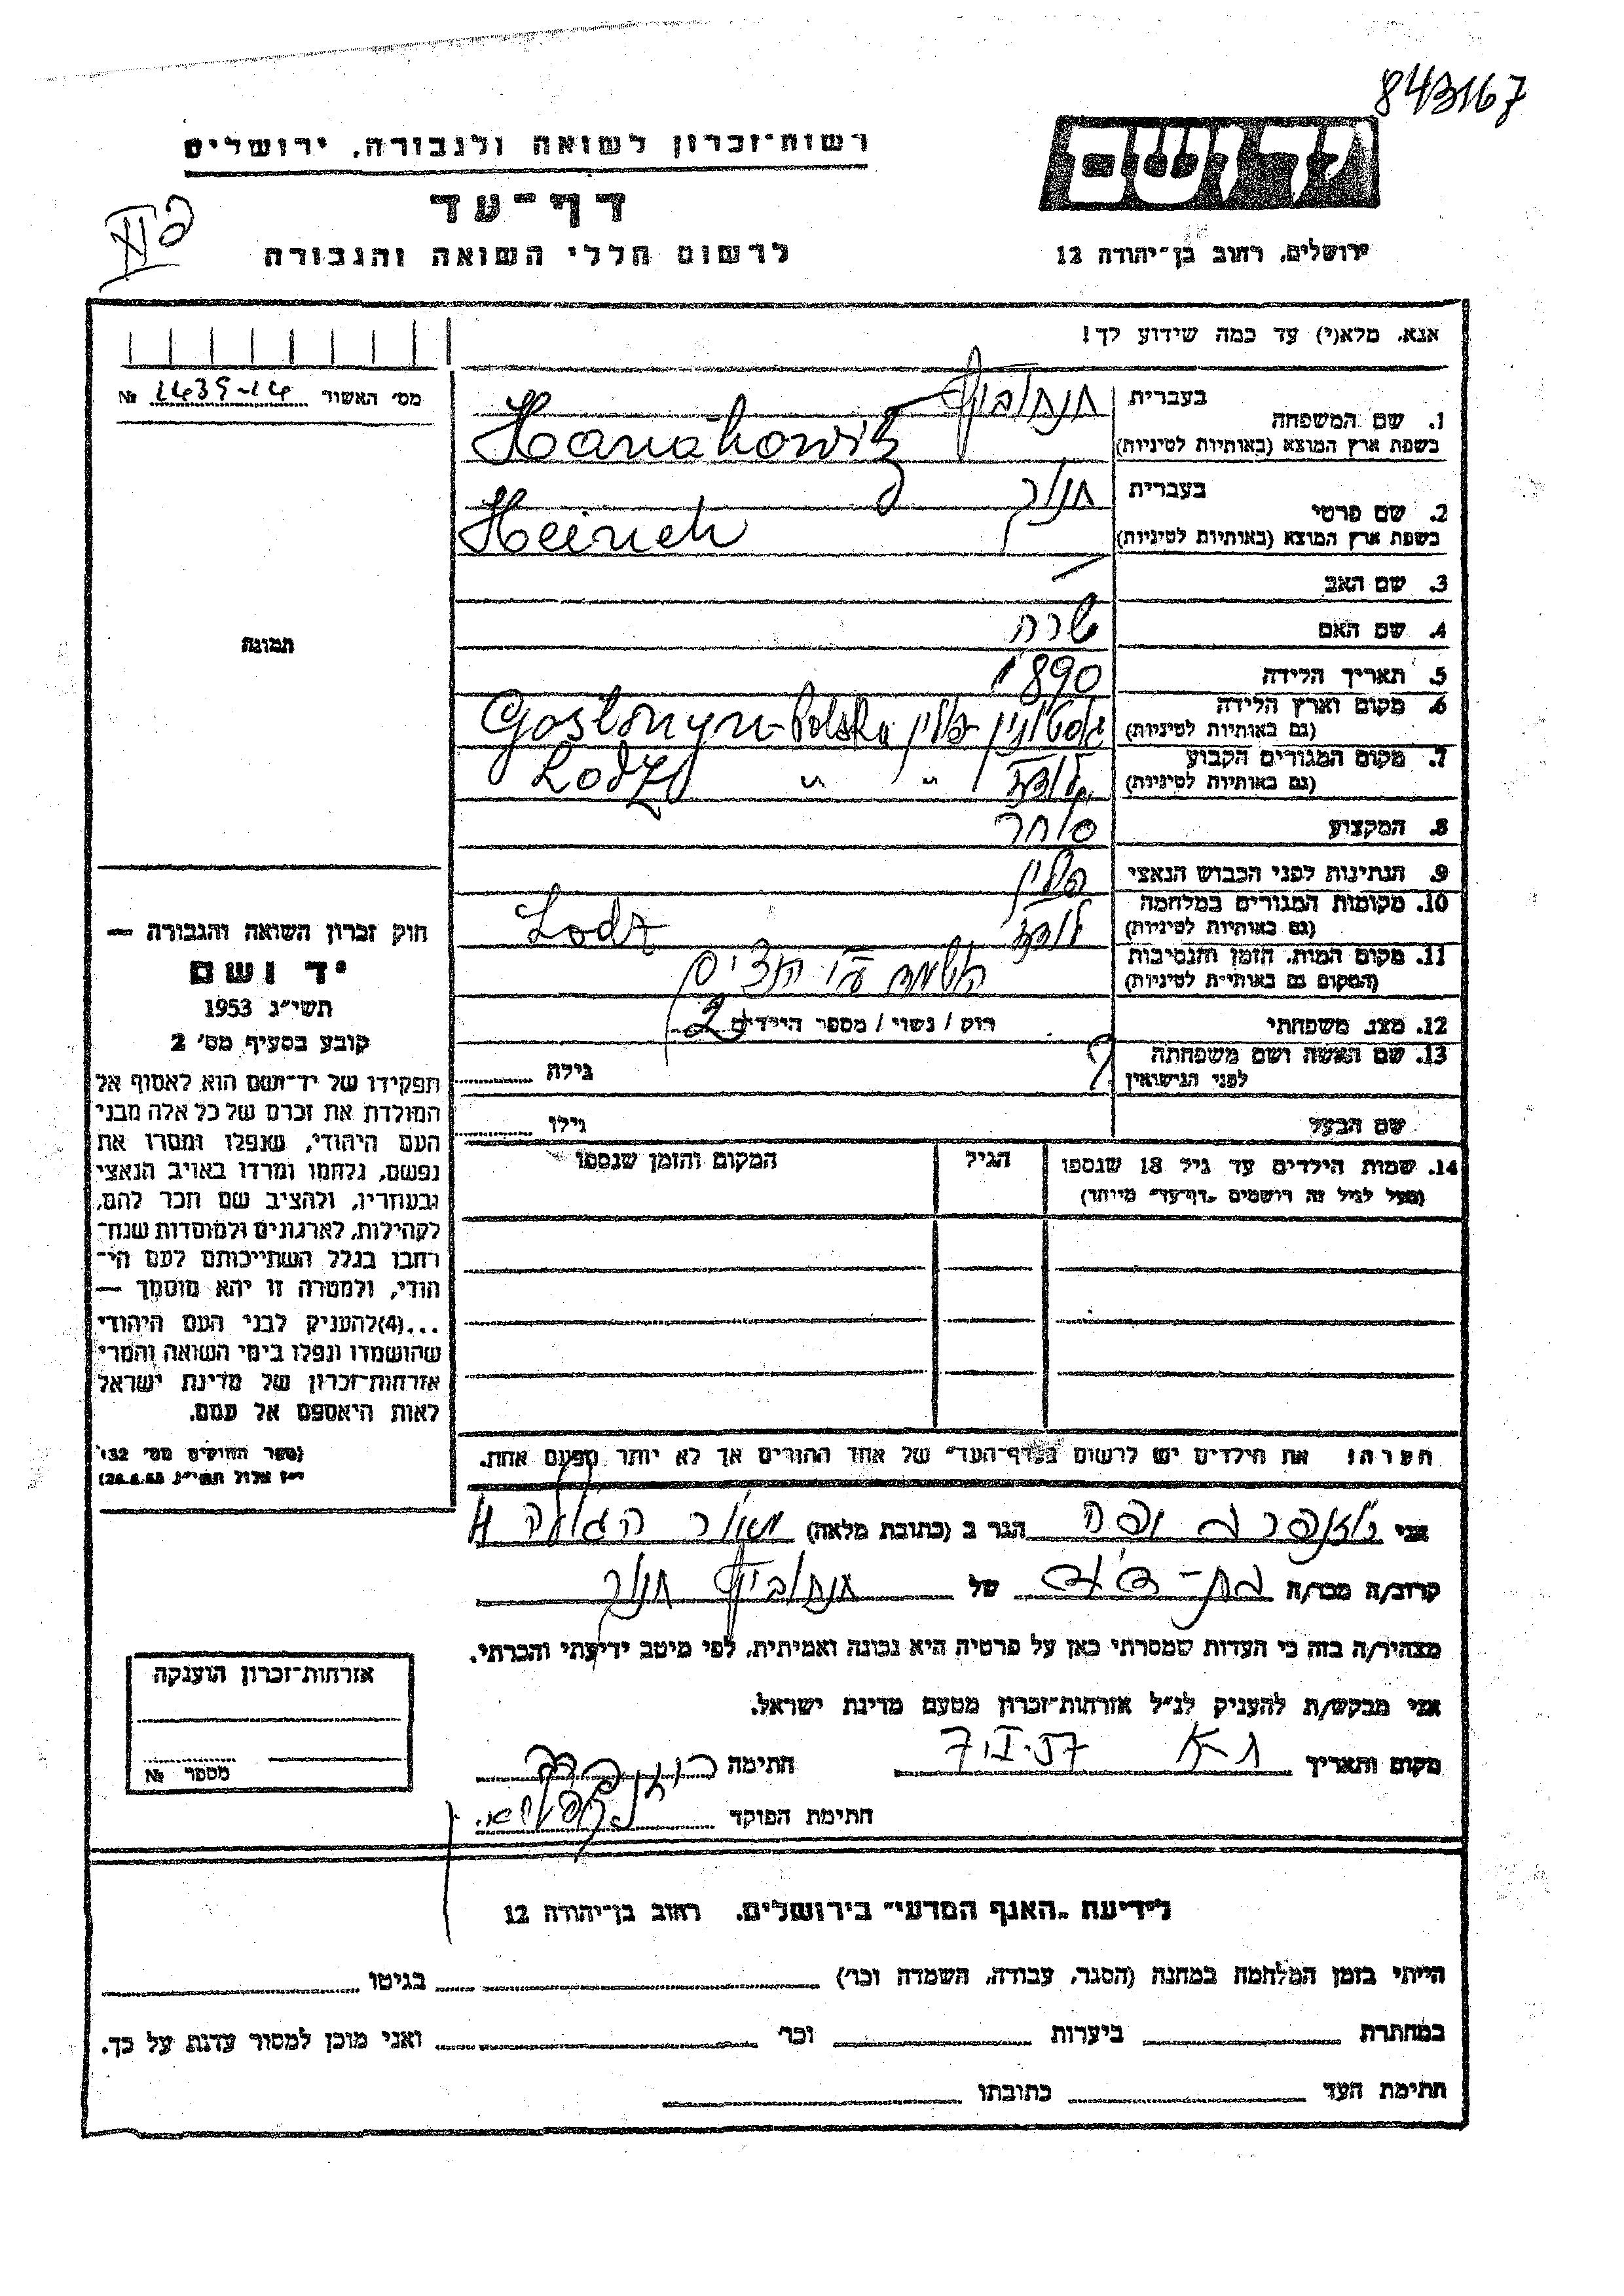 843167
רשות־זכרון לשואה ולגבורה, ירושלים
ידושם
דף־עד
לרשום חללי השואה והגבורה
ירושלים, רחוב בן־יהודה 12
אנא, מלא(י) עד כמה שידוע לך!
מס׳ האשור 1439-14 №
1. שם המשפחה
בעברית
בשפת ארץ המוצא (באותיות לטיניות)
Hanahowitz
2. שם פרטי
בעברית חנוך
בשפת ארץ המוצא (באותיות לטיניות)
Heinrich
3. שם האב —
4. שם האם שרה
5. תאריך הלידה 1890
6. מקום וארץ הלידה
(גם באותיות לטיניות)
גוסטונין פולין Gostonyn - Polska
7. מקום המגורים הקבוע
(גם באותיות לטיניות)
לודז׳ " " Lodz
8. המקצוע סוחר
9. הנתינות לפני הכבוש הנאצי פולין
10. מקומות המגורים במלחמה
(גם באותיות לטיניות)
לודז׳ Lodz
11. מקום המות, הזמן והנסיבות
(המקום גם באותיות לטיניות)
12. מצב משפחתי
רוק / נשוי / מספר הילדים 2
13. שם האשה ושם משפחתה
לפני הנישואין
? גילה
שם הבעל גילו
14. שמות הילדים עד גיל 18 שנספו
(מעל לגיל זה רושמים „דף־עד" מיוחד)
הגיל
המקום והזמן שנספו
הערה! את הילדים יש לרשום ב„דף־העד" של אחד ההורים אך לא יותר מפעם אחת.
תמונה
חוק זכרון השואה והגבורה —
יד ושם
תשי״ג 1953
קובע בסעיף מס׳ 2
תפקידו של יד־ושם הוא לאסוף אל
המולדת את זכרם של כל אלה מבני
העם היהודי, שנפלו ומסרו את
נפשם, נלחמו ומרדו באויב הנאצי
ובעוזריו, ולהציב שם וזכר להם,
לקהילות, לארגונים ולמוסדות שנח־
רבו בגלל השתייכותם לעם הי־
הודי, ולמטרה זו יהא מוסמך —
...(4)להעניק לבני העם היהודי
שהושמדו ונפלו בימי השואה והמרי
אזרחות־זכרון של מדינת ישראל
לאות היאספם אל עמם.
(ספר החוקים מס׳ 132
י״ז אלול תשי״ג 28.8.53)
אני הגר ב (כתובת מלאה)
קרוב/ה מכר/ה בת־דוד של חנוך
מצהיר/ה בזה כי העדות שמסרתי כאן על פרטיה היא נכונה ואמיתית, לפי מיטב ידיעתי והכרתי.
אני מבקש/ת להעניק לנ״ל אזרחות־זכרון מטעם מדינת ישראל.
מקום ותאריך ת־א 7.I.57 חתימה
חתימת הפוקד
אזרחות־זכרון הוענקה
מספר №
לידיעת „האגף המדעי" בירושלים, רחוב בן־יהודה 12
הייתי בזמן המלחמה במחנה (הסגר, עבודה, השמדה וכו׳) בגיטו
במחתרת ביערות וכו׳ ואני מוכן למסור עדות על כך.
חתימת העד כתובתו